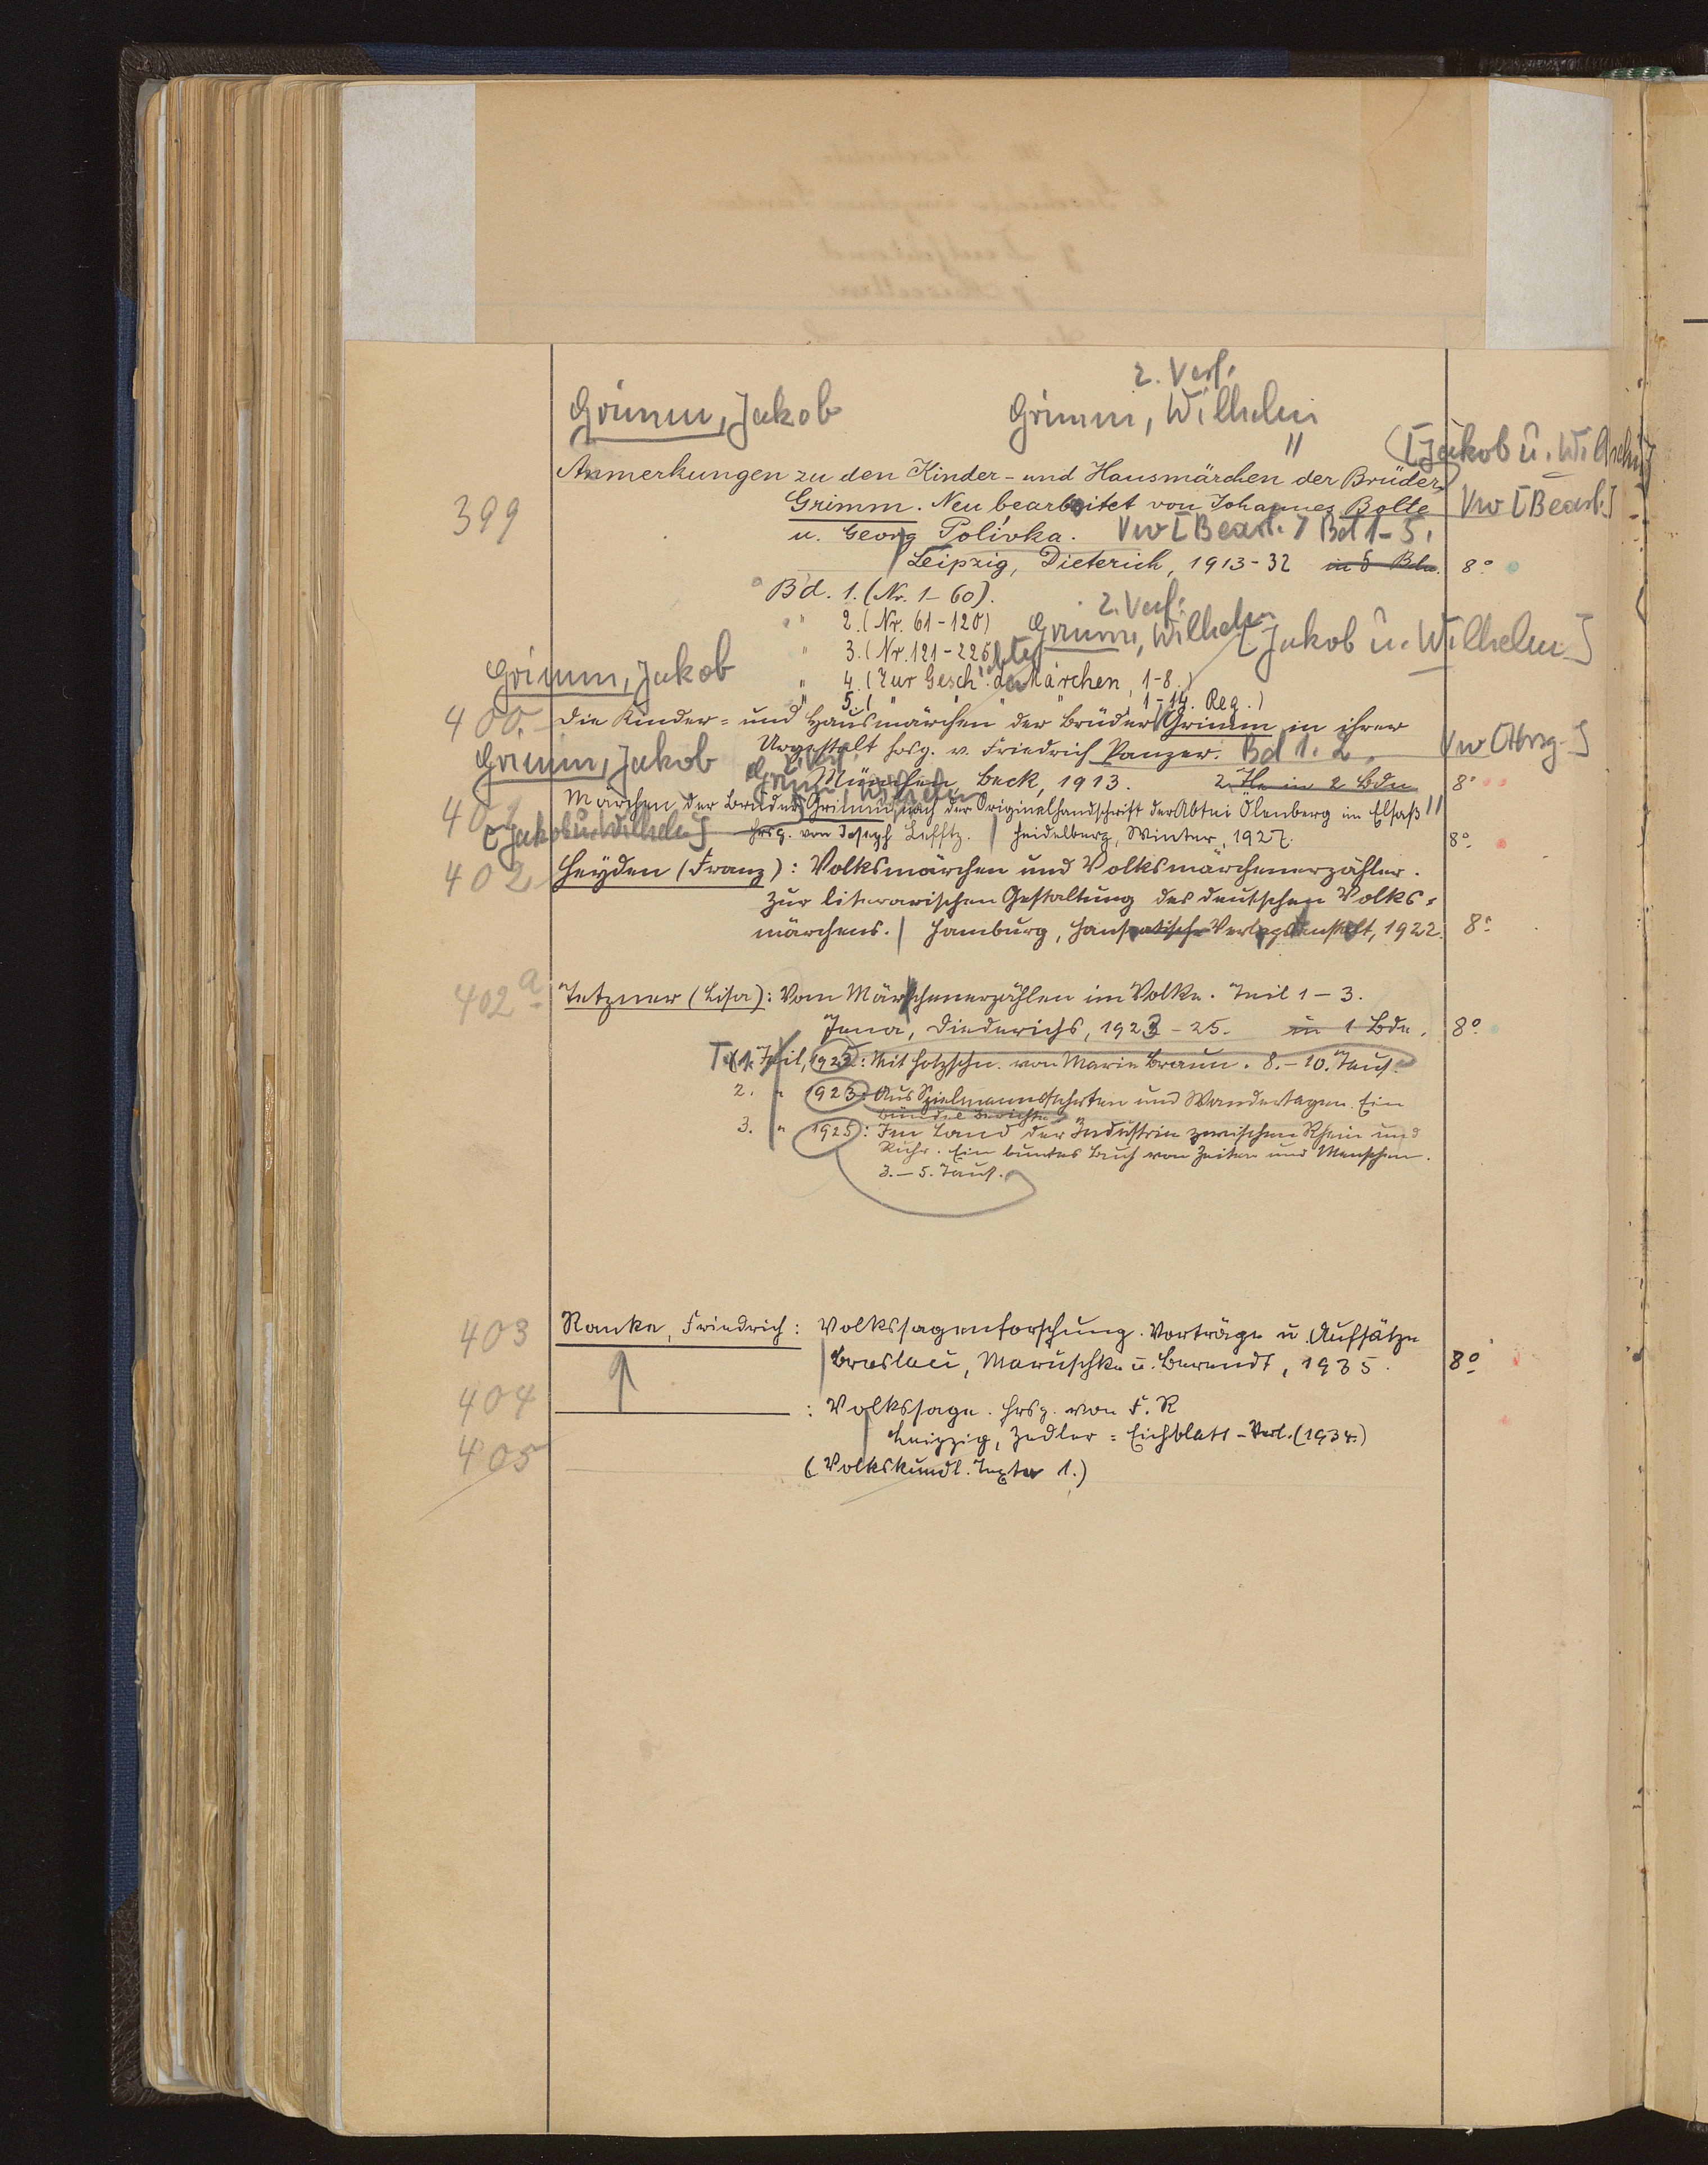 2. Verf.
Grimm, Jakob
Grimm, Wilhelm
[Jakob u. Wilhelm]
Anmerkungen zu den Kinder- und Hausmärchen der Brüder
399
Grimm. Neu bearbeitet von Johannes Bolte
Vw [Bearb.]
u. Georg Polívka. Vw [Bearb.] Bd 1-5.
Leipzig, Dieterich, 1913-32 in 5 Bdn. 8°
Bd. 1. (Nr. 1-60).
2. Verf.
" 2. (Nr. 61-120)
Grimm, Wilhelm [Jakob u. Wilhelm]
" 3. (Nr. 121-225)
Grimm, Jakob
" 4. (Zur Gesch. der Märchen, 1-8.)
" 5. ( " " " 1-14. Reg.)
400. Die Kinder- und Hausmärchen der Brüder Grimm in ihrer
Urgestalt hrsg. v. Friedrich Panzer. Bd 1. 2.
Vw [Hrsg.]
Grimm, Jakob
2. Verf.
München, Beck, 1913. 2 Tle in 2 Bdn 8°
Grimm, Wilhelm
401 Märchen der Brüder Grimm nach der Originalhandschrift der Abtei Ölenberg im Elsaß
[Jakob u. Wilhelm] hrsg. von Joseph Lefftz. | Heidelberg, Winter, 1927. 8°
402 Heyden (Franz): Volksmärchen und Volksmärchenerzähler.
Zur literarischen Gestaltung des deutschen Volks-
märchens. | Hamburg, Hanseatische Verlagsanstalt, 1922. 8°
402a Tetzner (Lisa): Vom Märchenerzählen im Volke. Teil 1-3.
Jena, Diederichs, 1923-25. in 1 Bde. 8°
1. Teil, 1925: Mit Holzschn. von Maria Braun. 8.-10. Taus.
2. " 1923: Aus Spielmannsfahrten und Wandertagen. Ein
Bündel Berichte
3. " 1925: Im Land der Industrie zwischen Rhein und
Ruhr. Ein buntes Buch von Zeiten und Menschen.
3.-5. Taus.
403 Ranke, Friedrich: Volkssagenforschung. Vorträge u. Aufsätze
Breslau, Maruschke u. Berendt, 1935. 8°
404 : Volkssage. hrsg. von F. R
Leipzig, Zedler = Eichblatt-Verl. (1934.)
405
(Volkskundl. Texte 1.)